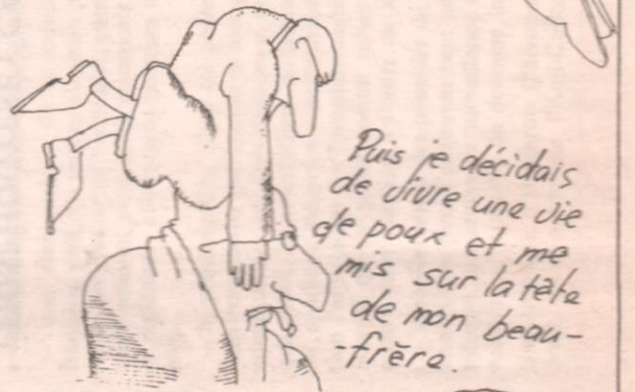 Puis je décidais
de vivre une vie
de poux et me
mis sur la tête
de mon beau-
-frère.